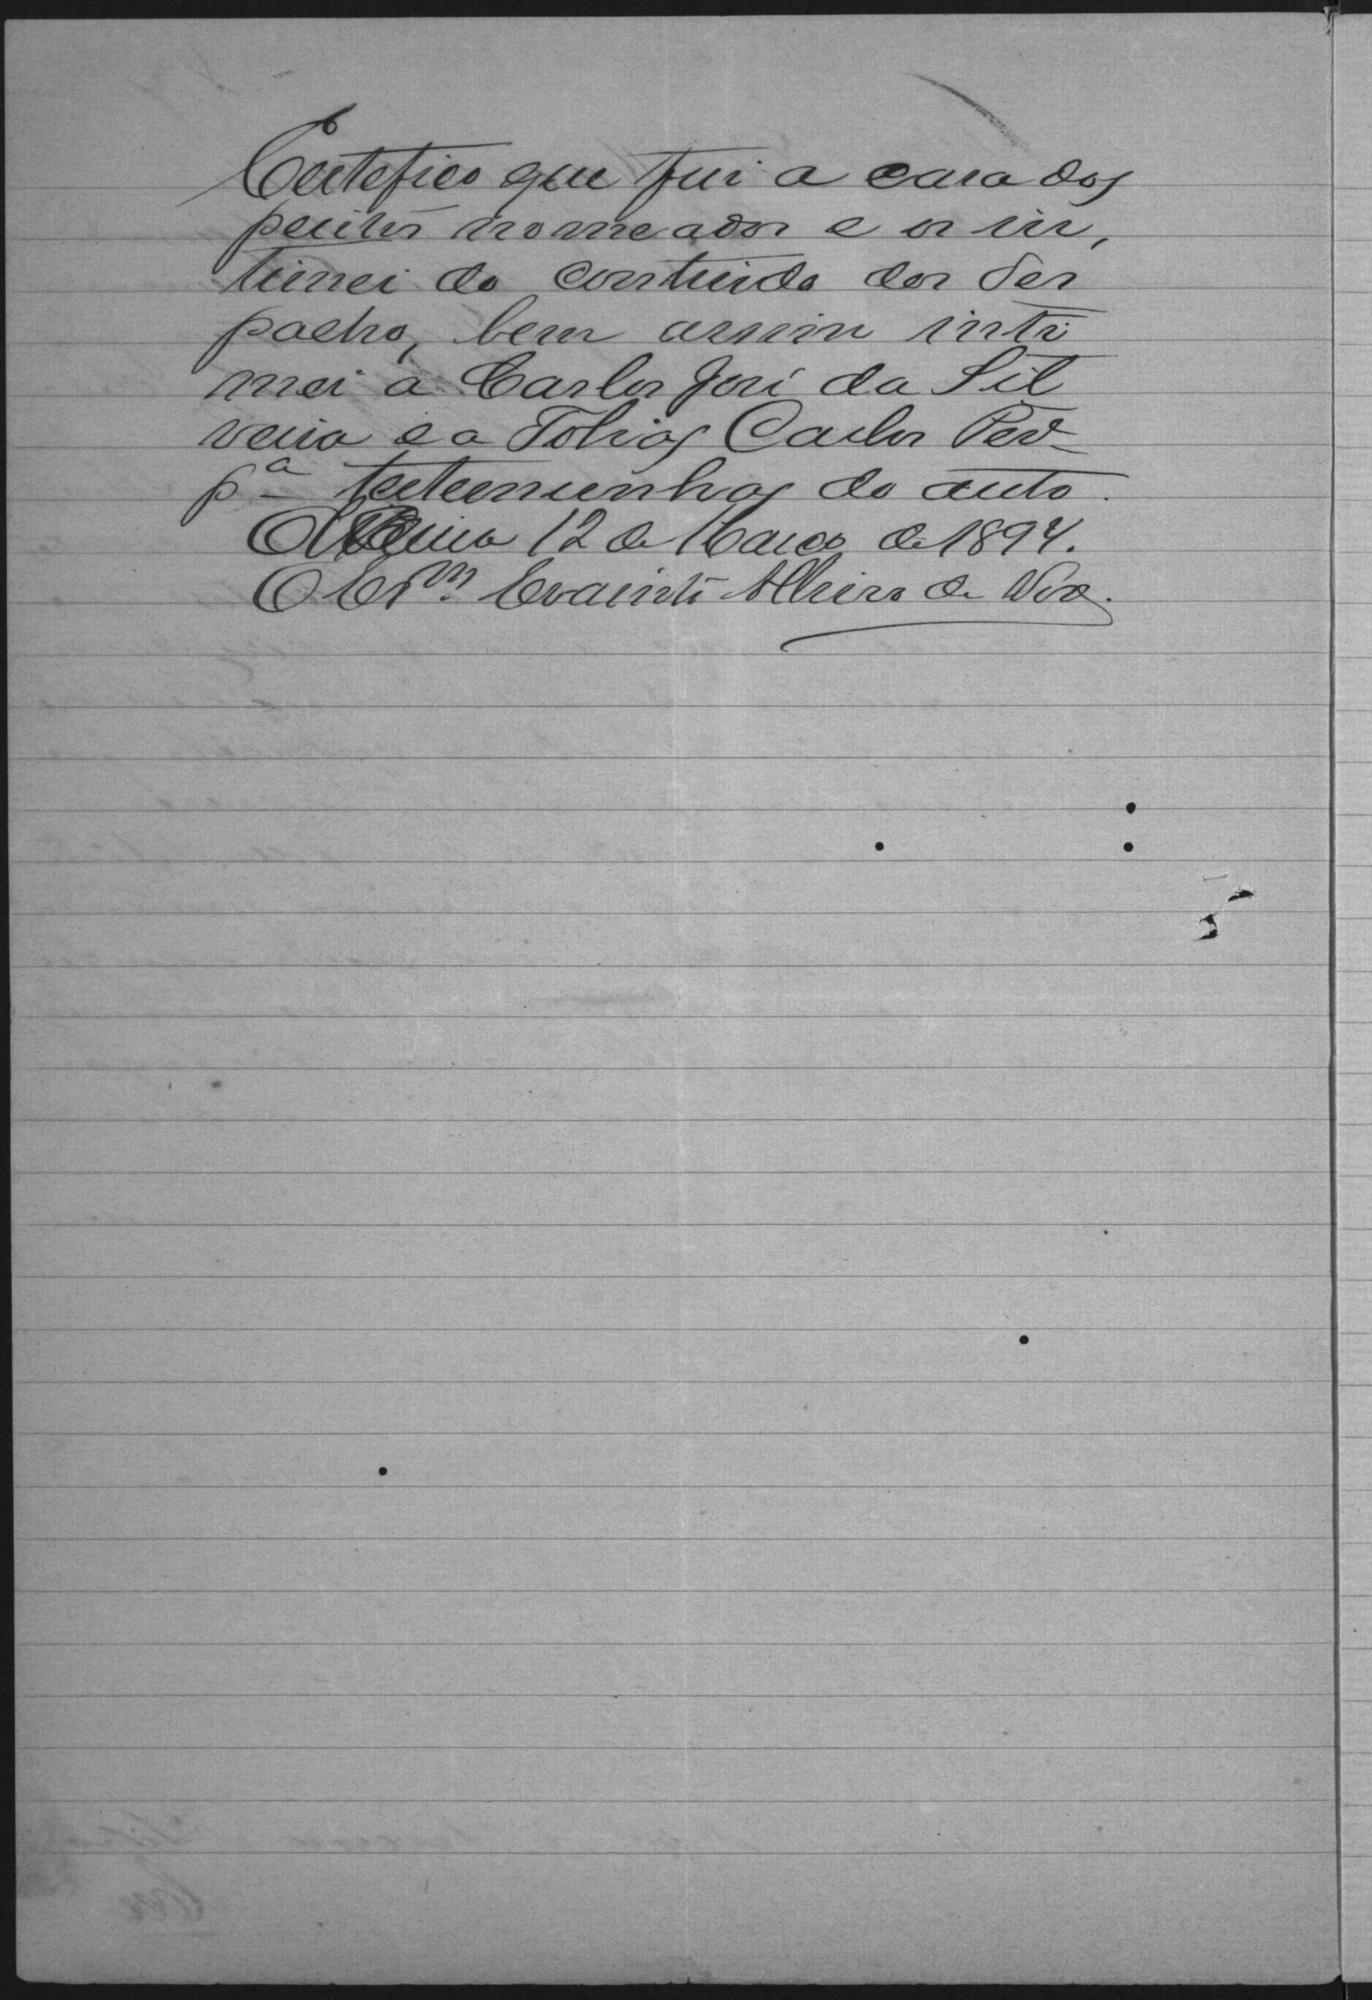 Certefico que fui a casa dos
peritos nomeados e os in,
timei do contheudo dos des
pacho, bem assim inti
mei a Carlos José da Sil
veira e a Tobias Carlos
pª testemunhas do auto.
12 de Março de 1894.
O Esᵐ de